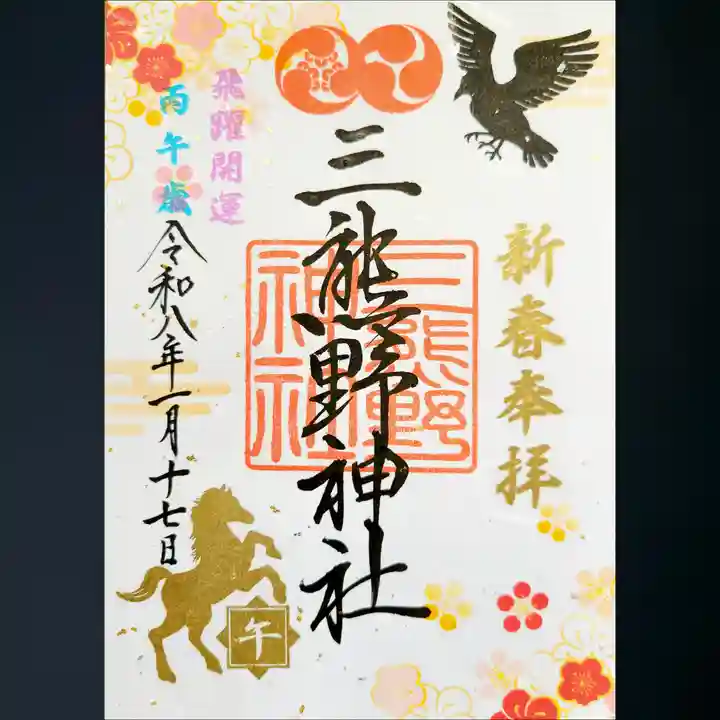 新春奉拝
三熊野神社
三熊野
神社
飛躍開運
丙午歳
令和八年一月十七日
午